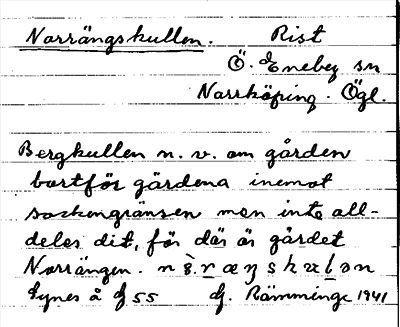 Norrängskullen. Rist
Ö. Eneby sn
Norrköping. Ögl.
Bergkullen n. v. om gården
bortför gärdena inemot
sockengränsen men inte all-
deles dit, för där är gärdet
Norrängen.
synes å
55 Rämminge 1941